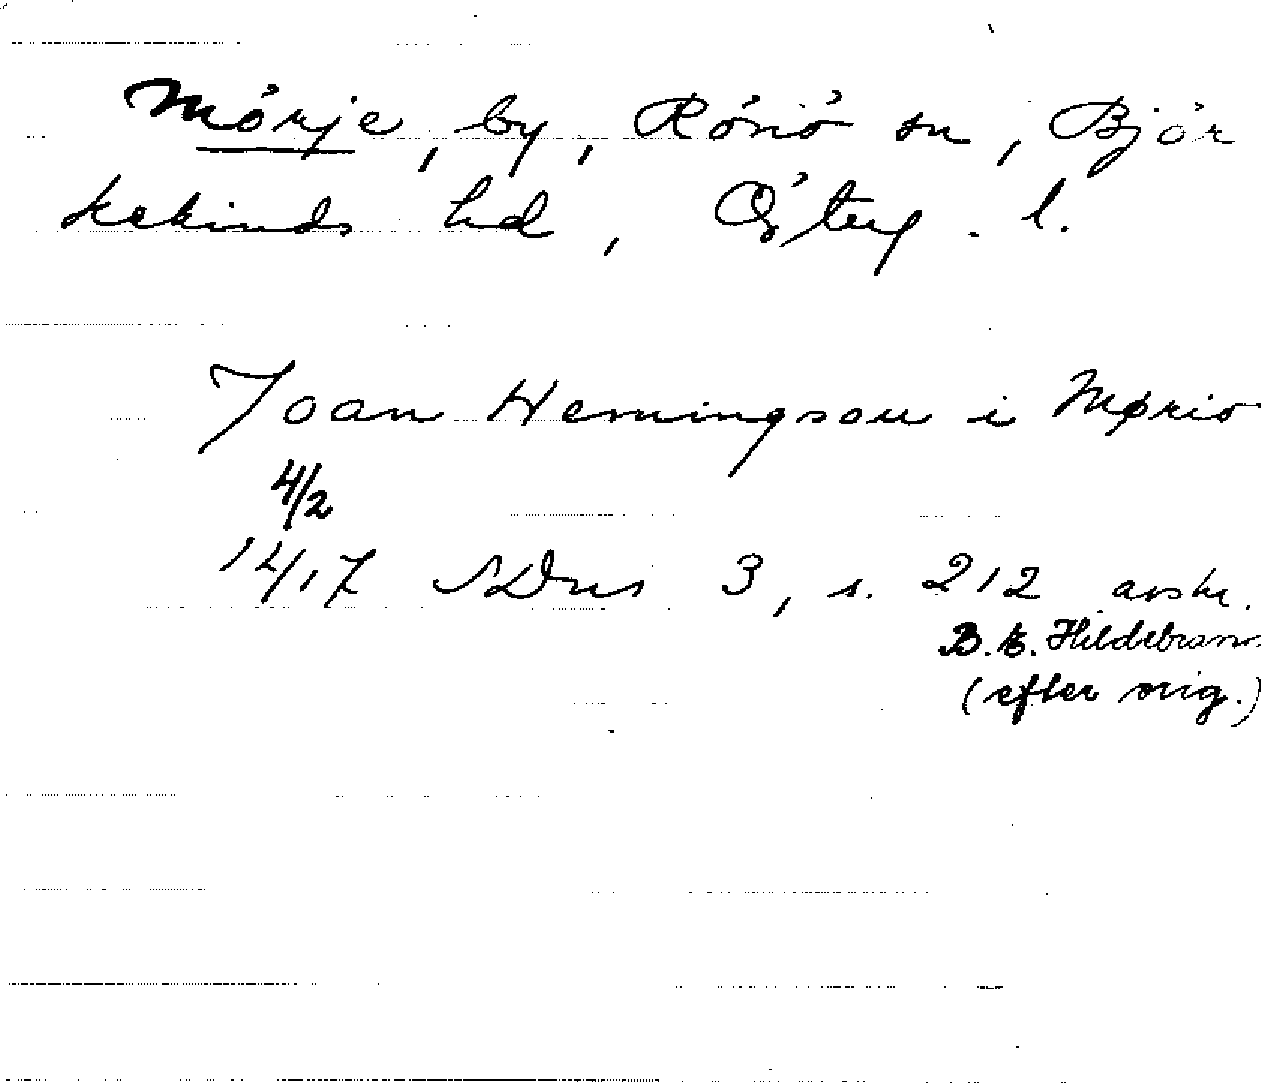 Mörje, by, Rönö sn, Björ
kekinds hd,Österg. l.
Joan Hemingson i Mørio
4/2
1417 SDns 3, s. 212 avskr.
B. E. Hildebrand
(efter orig.)